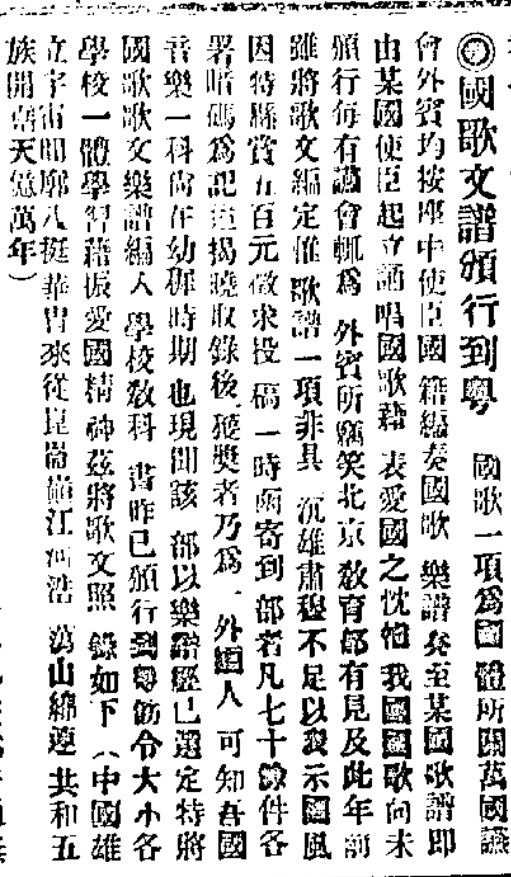 國歌文譜頒行到粤　國歌一項爲國體所關萬國讌
會外賓均按座中使臣國籍編奏國歌樂譜奏至某國歌譜即
由某國使臣起立誦唱國歌藉表愛國之忱惟我國國歌向未
頒行每有讌會輒爲外賓所竊笑北京敎育部有見及此年前
雖將歌文編定惟歌譜一項非具沉雄肅穆不足以表示國風
因特縣賞五百元徵求投稿一時函寄到部者凡七十餘件各
署暗碼爲記迨揭曉取錄後獲奬者乃爲一外國人可知吾國
音樂一科尙在幼稺時期也現聞該部以樂譜歷已選定特將
國歌歌文樂譜編入學校敎科書昨已頒行到粤飭令大小各
學校一體學習藉振愛國精神茲將歌文照錄如下（中國雄
立宇宙間廓八埏華胄來從崑崙巓江河浩蕩山綿連共和五
族開堯天億萬年）